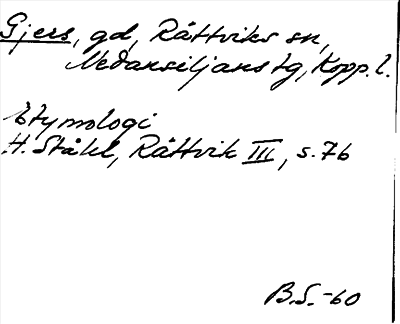 Gjers, gd, Rättviks sn,
Nedansiljans tg, Kopp. l.
Etymologi
H. Ståhl, Rättvik III, s. 76
B.S. -60